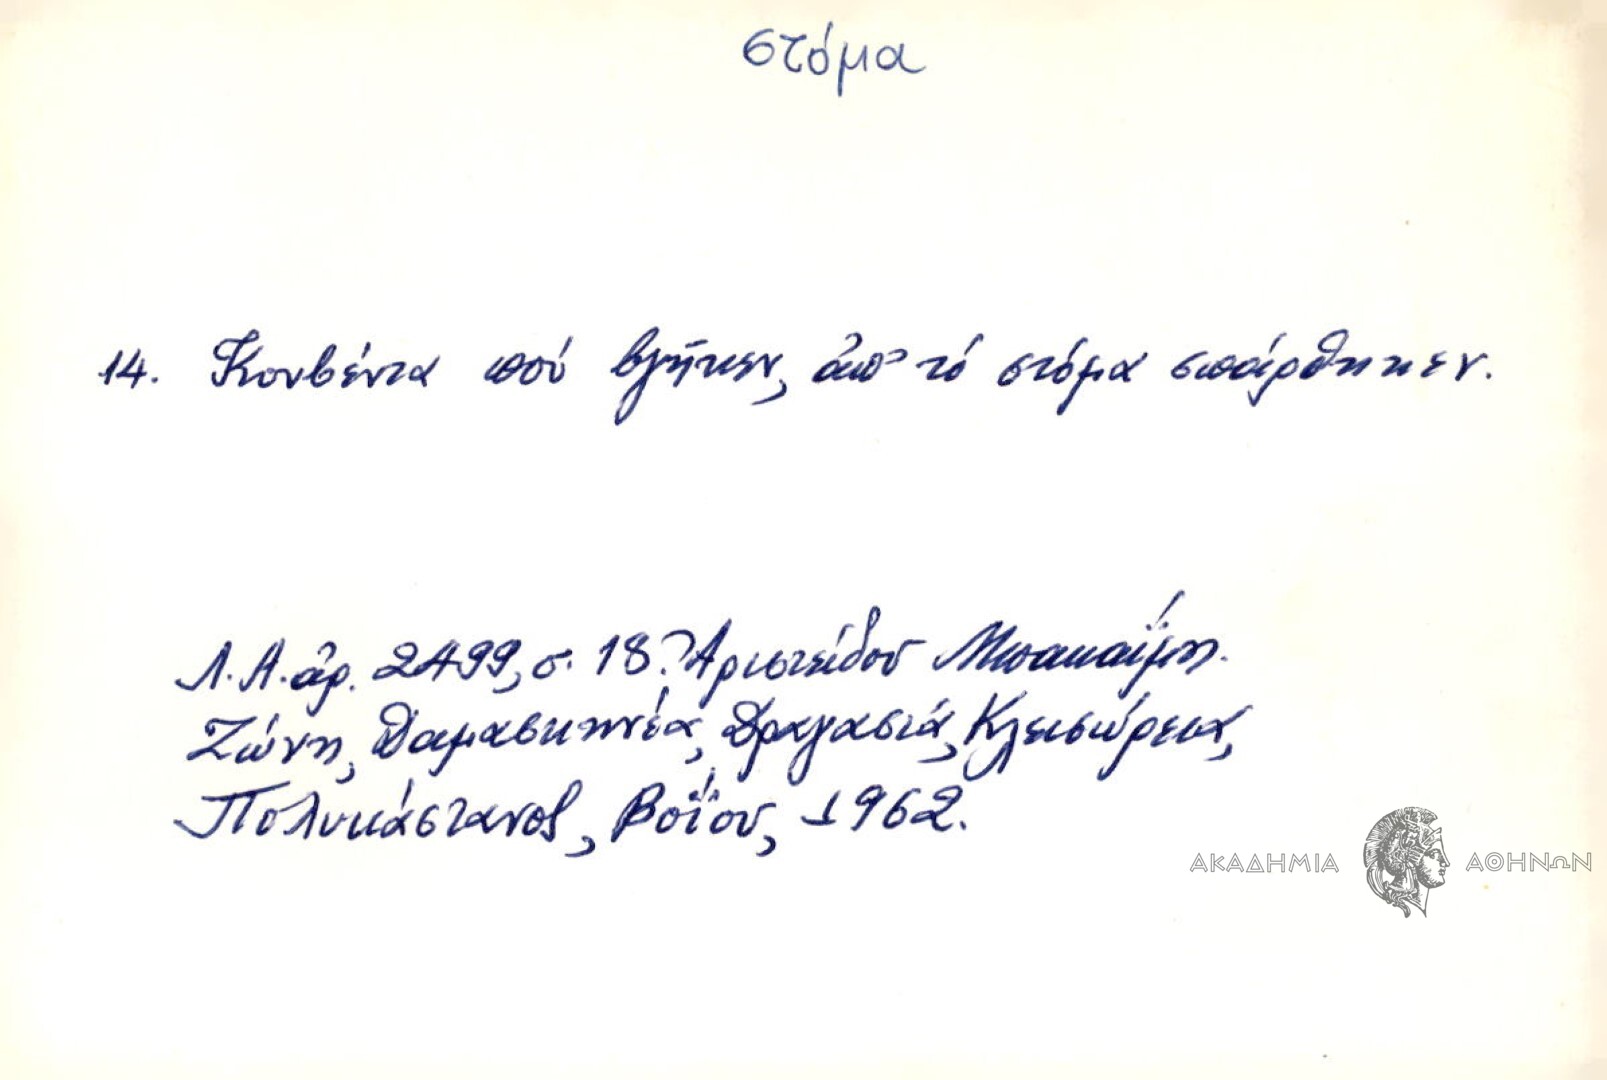 στόμα
14. Κουβέντα πού βγῆκεν, ἀπ' τό στόμα σπάρθηκεν.
Λ.Α. ἀρ. 2499, σ. 18. Ἀριστείδου Μπακαΐμη.
Ζώνη, Δαμασκηνέα, Δραγασιά, Κλεισώρεια,
Πολυκάστανος, Βοΐου, 1962.
ΑΚΑΔΗΜΙΑ ΑΘΗΝΩΝ